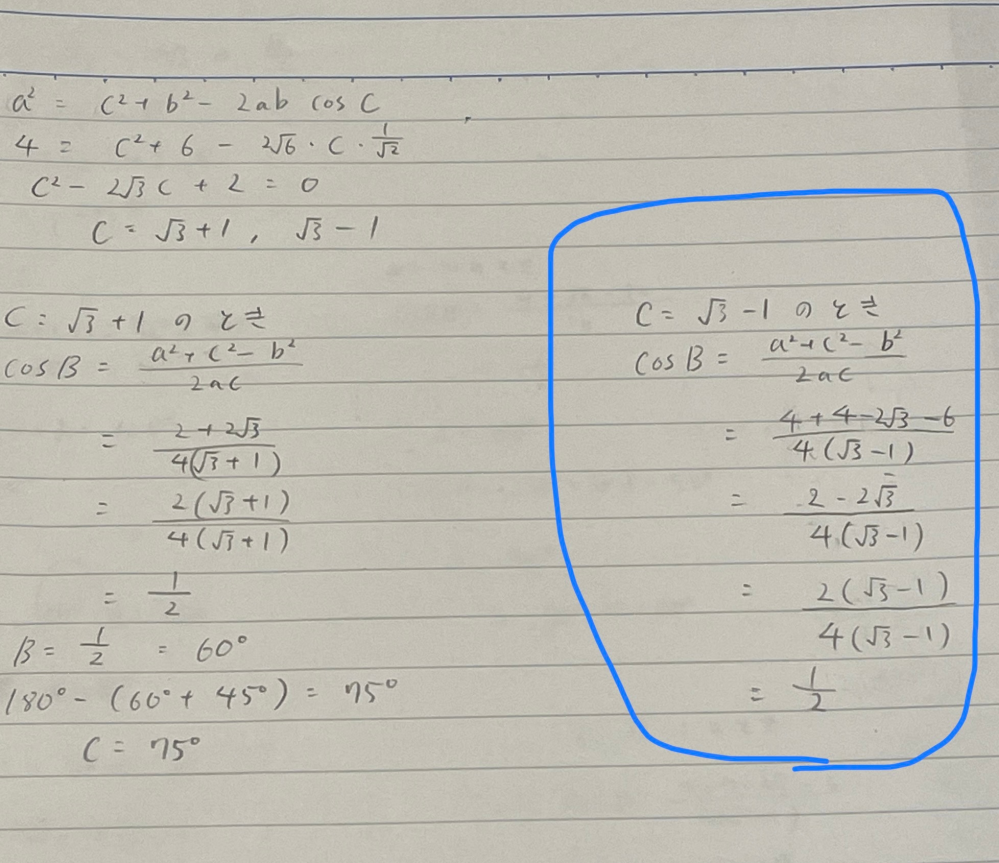 a² = c² + b² - 2ab cos C
4 = c² + 6 - 2√6・c・1/√2
c² - 2√3 c + 2 = 0
c = √3 + 1 , √3 - 1
c = √3 + 1 のとき
cos B = (a² + c² - b²)/(2ac)
= (2 + 2√3)/(4(√3 + 1))
= (2(√3 + 1))/(4(√3 + 1))
= 1/2
B = 1/2 = 60°
180° - (60° + 45°) = 75°
C = 75°
c = √3 - 1 のとき
cos B = (a² + c² - b²)/(2ac)
= (4 + 4 - 2√3 - 6)/(4(√3 - 1))
= (2 - 2√3)/(4(√3 - 1))
= (2(√3 - 1))/(4(√3 - 1))
= 1/2